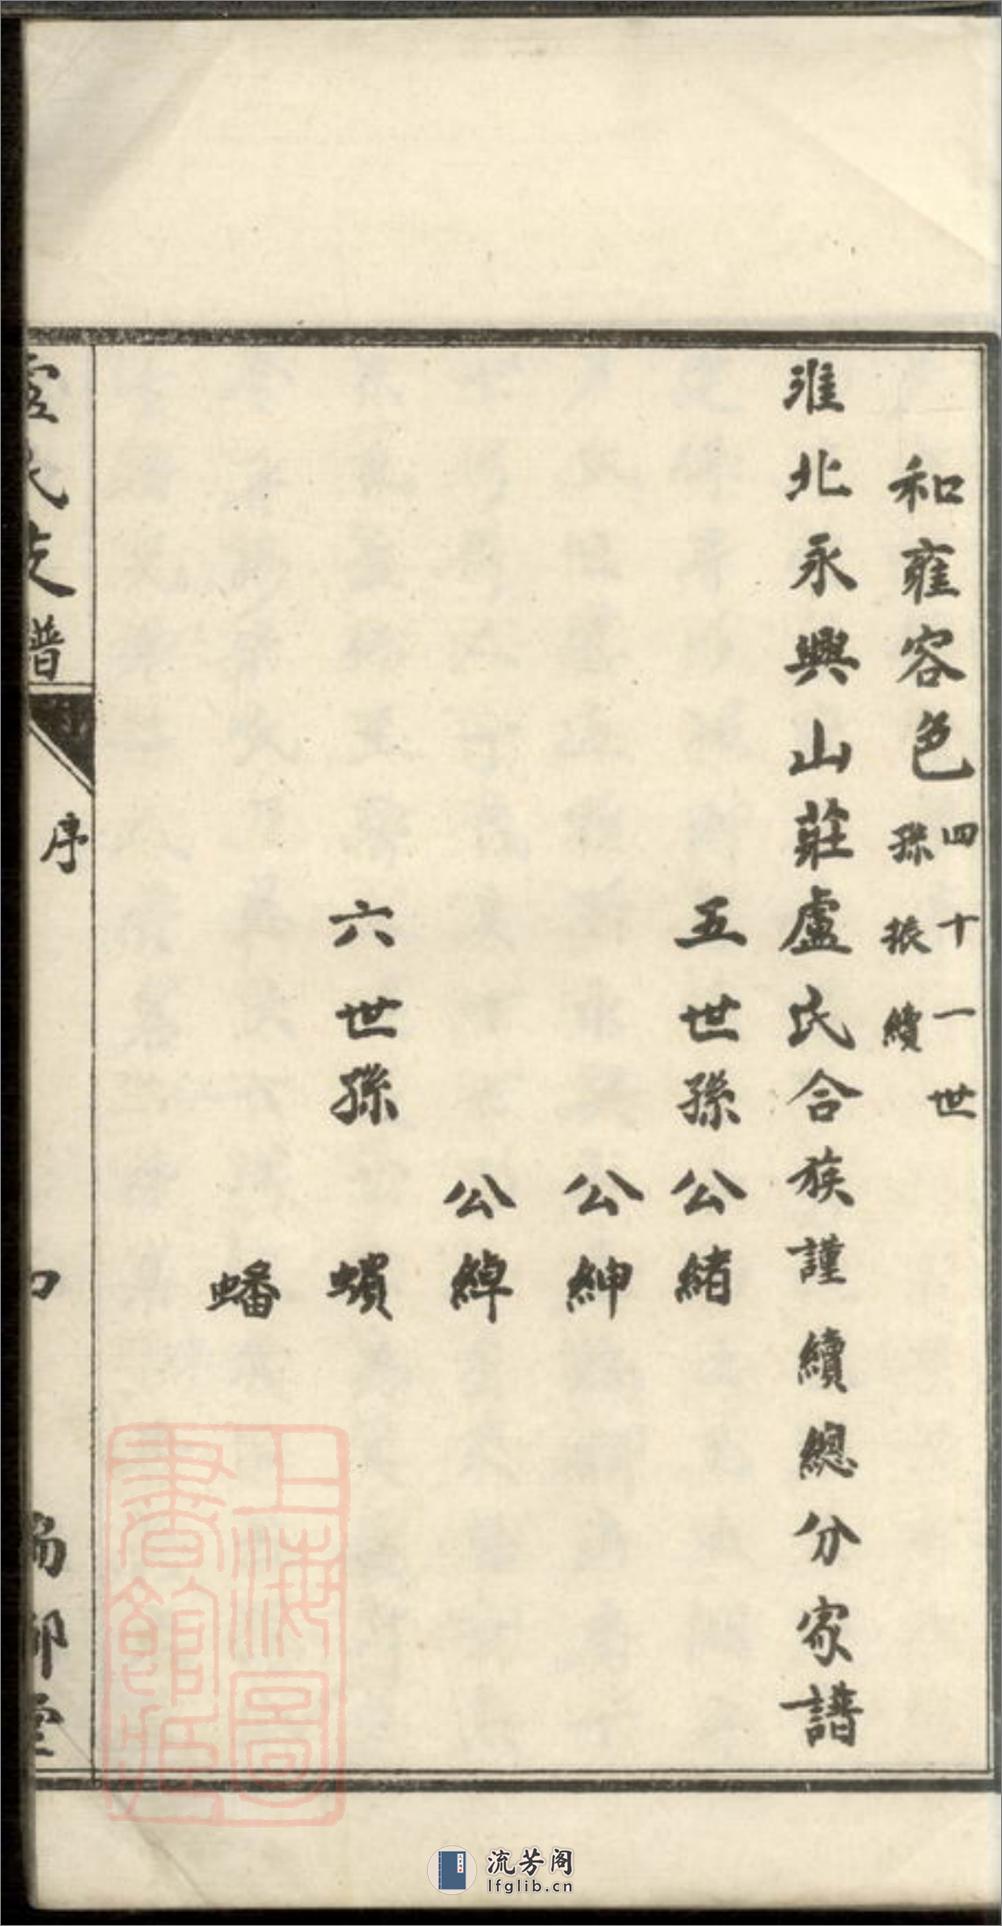 和雍容色 四十一世
孫振續
淮北永興山莊盧氏合族謹續總分家譜
五世孫 公緒
公紳
公綽
六世孫 蠙
蟠
氏支譜 序
堂
上海圖
書館藏
流芳阁
lfglib.cn